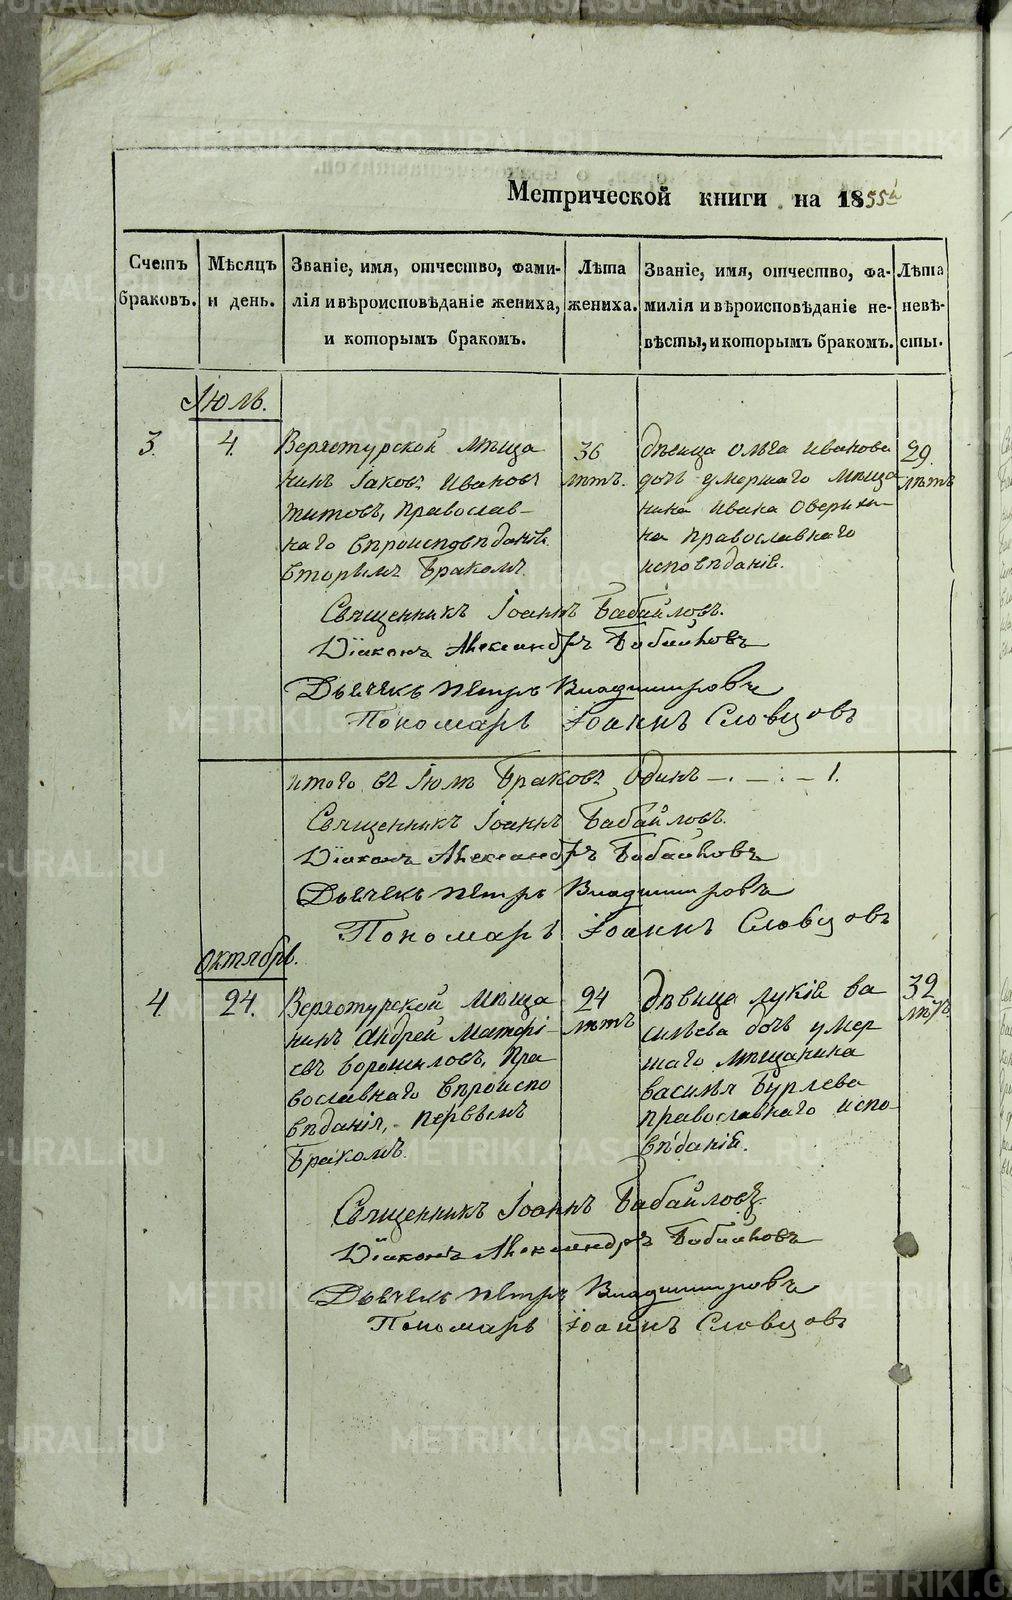 Метрической книги на 1855й
Счетъ браковъ.
Мѣсяцъ и день.
Званіе, имя, отчество, фами-
лія и вѣроисповѣданіе жениха,
и которымъ бракомъ.
Лѣта жениха.
Званіе, имя, отчество, фа-
милія и вѣроисповѣданіе не-
вѣсты, и которымъ бракомъ.
Лѣта невѣ-
сты.
Іюль.
3. 4.
Верхотурской мѣща
нинъ Іаковъ Ивановъ
Титовъ, православ-
наго вѣроисповѣданія
вторымъ бракомъ
36
лѣтъ.
дѣвица Ольга Иванова
дочь умершаго мѣща
нина Ивана
на православнаго
исповѣданія.
29.
лѣтъ
Священникъ Іоаннъ Бабайловъ.
Діаконъ Александръ Бабайловъ
Дьячекъ Петръ Владимировъ
Пономарь Іоаннъ Словцовъ
итого въ Іюлѣ браковъ Одинъ — . — : — 1.
Священникъ Іоаннъ Бабайловъ
Діаконъ Александръ Бабайловъ
Дьячекъ Петръ Владимировъ
Пономарь Іоаннъ Словцовъ
Октябрь.
4 24.
Верхотурской мѣща
нинъ Андрей
евъ Ворошиловъ, Пра
вославнаго вѣроиспо
вѣданія, первымъ
бракомъ.
24
лѣтъ
дѣвица Лукія Ва
сильева дочь умер
шаго мѣщанина
Василья Бурлева
православнаго испо-
вѣданія.
32
лѣтъ
Священникъ Іоаннъ Бабайловъ
Діаконъ Александръ Бабайловъ
Дьячекъ Петръ Владимировъ
Пономарь Іоаннъ Словцовъ
METRIKI.GASO-URAL.RU